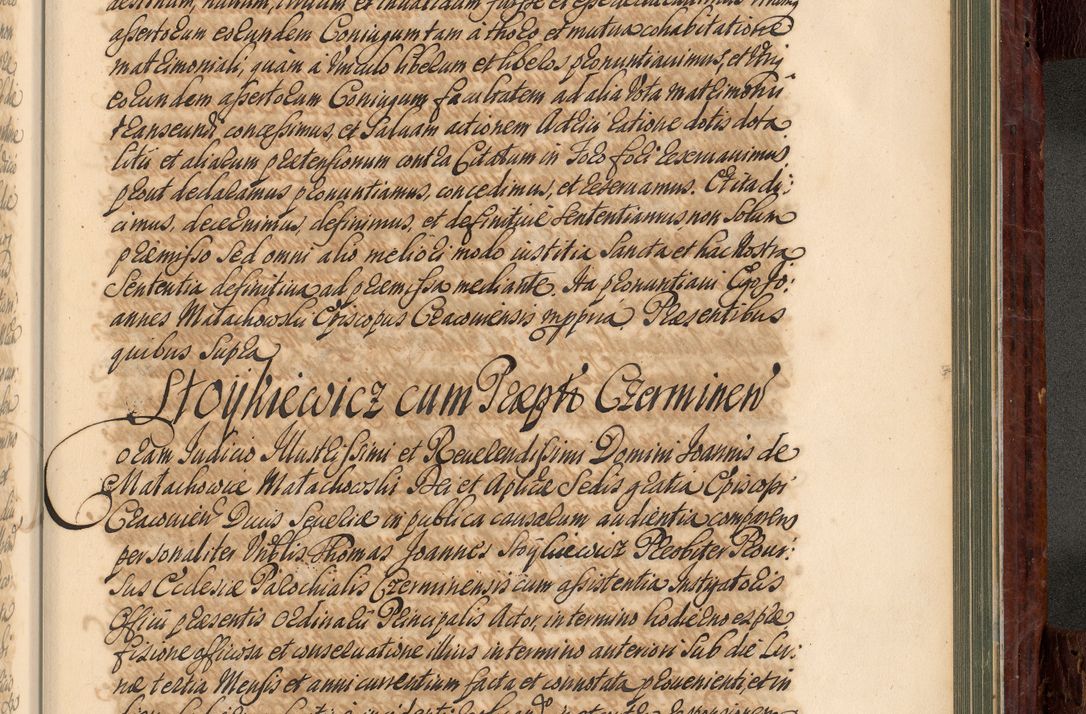 assertorum eorundem Coniugum tam à thoro et mutua cohabitatione
matrimoniali, quàm a Vinculo liberum et liberos pronuntiauimus, et
eorundem assertorum Coniugum facultatem ad alia Vota matrimonii
transeundi concessimus, et Saluam actionem Actrici ratione dotis dota
litii et aliarum praetensionum contra Citatum in Foro fori reseruauimus
prout declaramus pronuntiamus, concedimus, et reseruamus. Et ita di:
cimus, decernimus, definimus, et definitiue Sententiamus, non Solum
praemisso Sed omni alio meliori modo iustitia Sancta et hac Nostra
Sententia definitiua ad praemissa mediante. Ita pronuntiaui Ego Jo:
annes Małachowski Episcopus Cracouiensis mppria, Praesentibus
quibus Supra
Stoÿkiewicz cum Praepto Czerminen
Coram Judicio Illustrissimi et Reuerendissimi Domini Joannis de
Małachowice Małachowski Dei et Aplicae Sedis gratia Episcopi
Cracouien Ducis Seueriae in publica causarum audientia comparens
personaliter Vrblis Thomas Joannes Stoÿkiewicz Presbiter Prour:
Sus Ecclesiae Parochialis Czerminensis cum assistentia Instigatoris
Officii praesentis ordinarii Principalis Actor, in termino hodierno ex prae
fixione officiosa et conseruatione illius in termino anteriori Sub die Lu:
nae tertia Mensis et anni currentium facta et connotata proueniente, et in